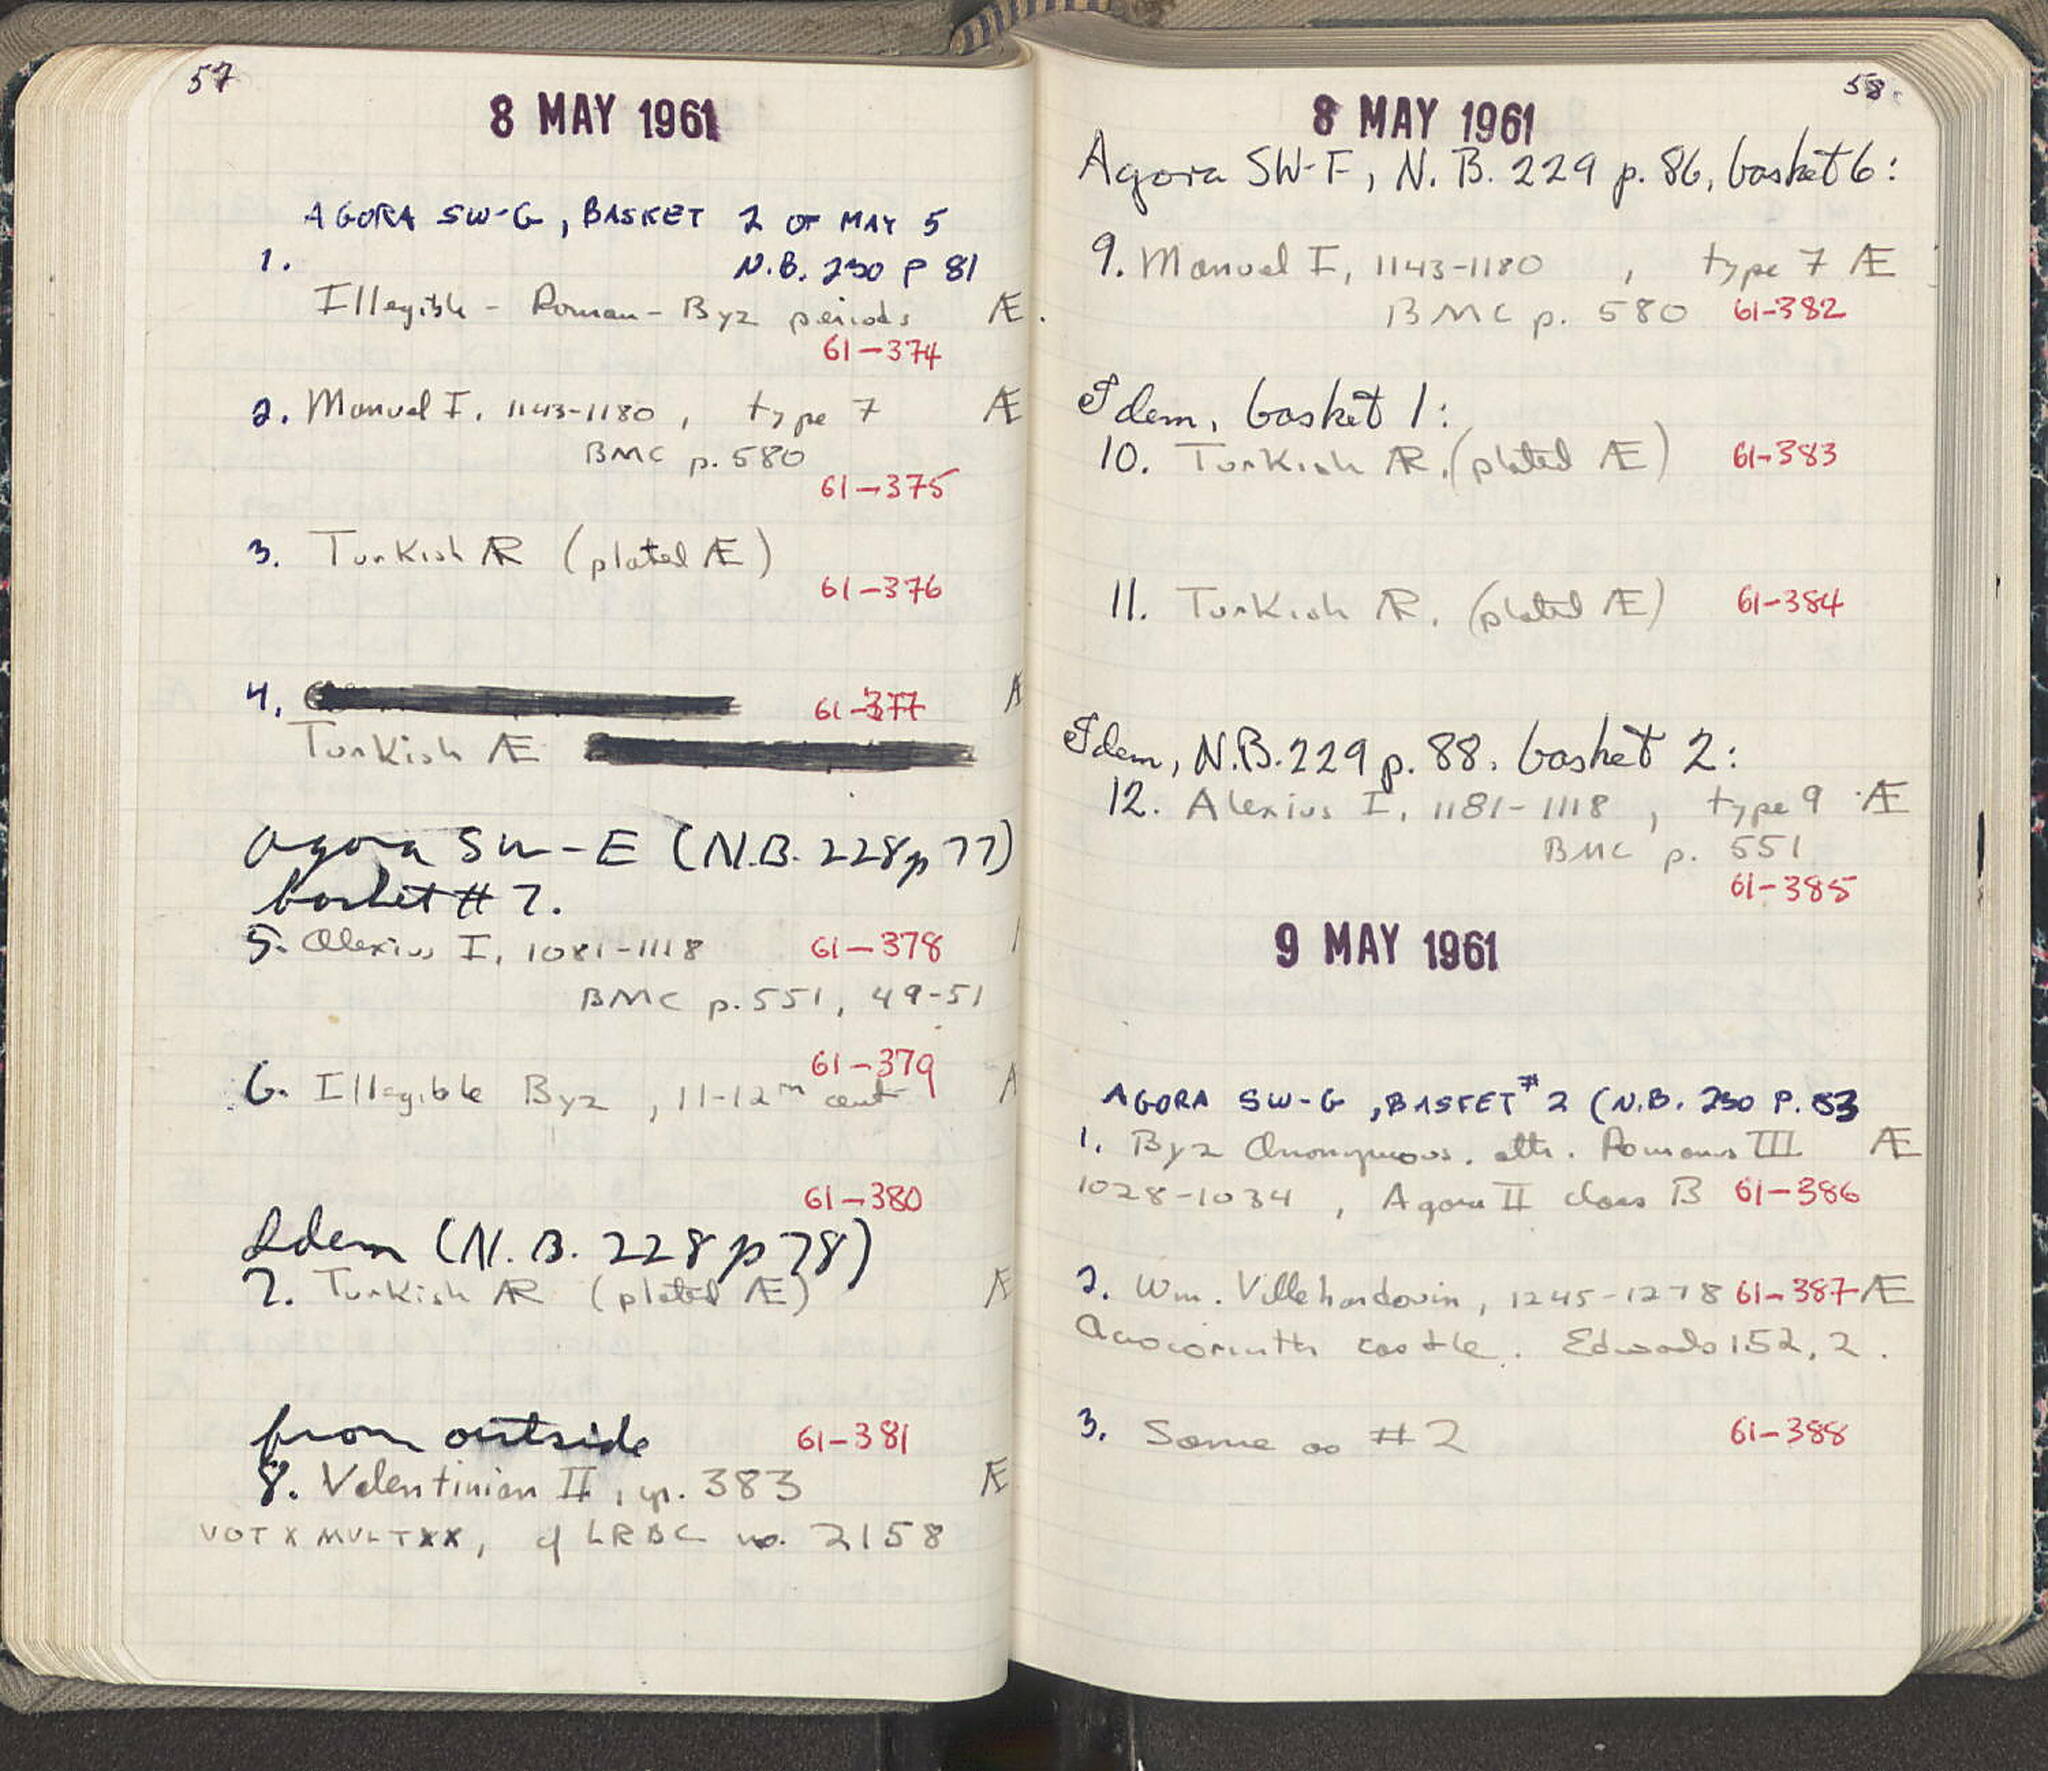 57
8 MAY 1961
AGORA SW-G, BASKET 2 OF MAY 5
1. N.B. 230 P 81
Illegible - Roman - Byz periods Æ.
61-374
2. Manuel I, 1143-1180, type 7 Æ
BMC p. 580
61-375
3. Turkish AR (plated Æ)
61-376
4. 61-377 Æ
Turkish Æ
Agora SW-E (N.B. 228 p 77)
basket # 7.
5. Alexius I, 1081-1118 61-378
BMC p. 551, 49-51
61-379
6. Illegible Byz, 11-12th cent
61-380
Idem (N.B. 228 p 78)
7. Turkish AR (plated Æ) Æ
from outside 61-381
8. Valentinian II, yr. 383 Æ
VOT X MVLT XX, cf LRBC no. 2158
58
8 MAY 1961
Agora SW-F, N.B. 229 p. 86, basket 6:
9. Manuel I, 1143-1180, type 7 Æ
BMC p. 580 61-382
Idem, basket 1:
10. Turkish AR. (plated Æ) 61-383
11. Turkish AR. (plated Æ) 61-384
Idem, N.B. 229 p. 88. basket 2:
12. Alexius I, 1181-1118, type 9 Æ
BMC p. 551
61-385
9 MAY 1961
AGORA SW-G, BASKET #2 (N.B. 230 P. 83
1. Byz Anonymous. attr. Romanus III Æ
1028-1034, Agora II class B 61-386
2. Wm. Villehardouin, 1245-1278 61-387 Æ
Acrocorinth castle. Edwards 152, 2.
3. Same as # 2 61-388